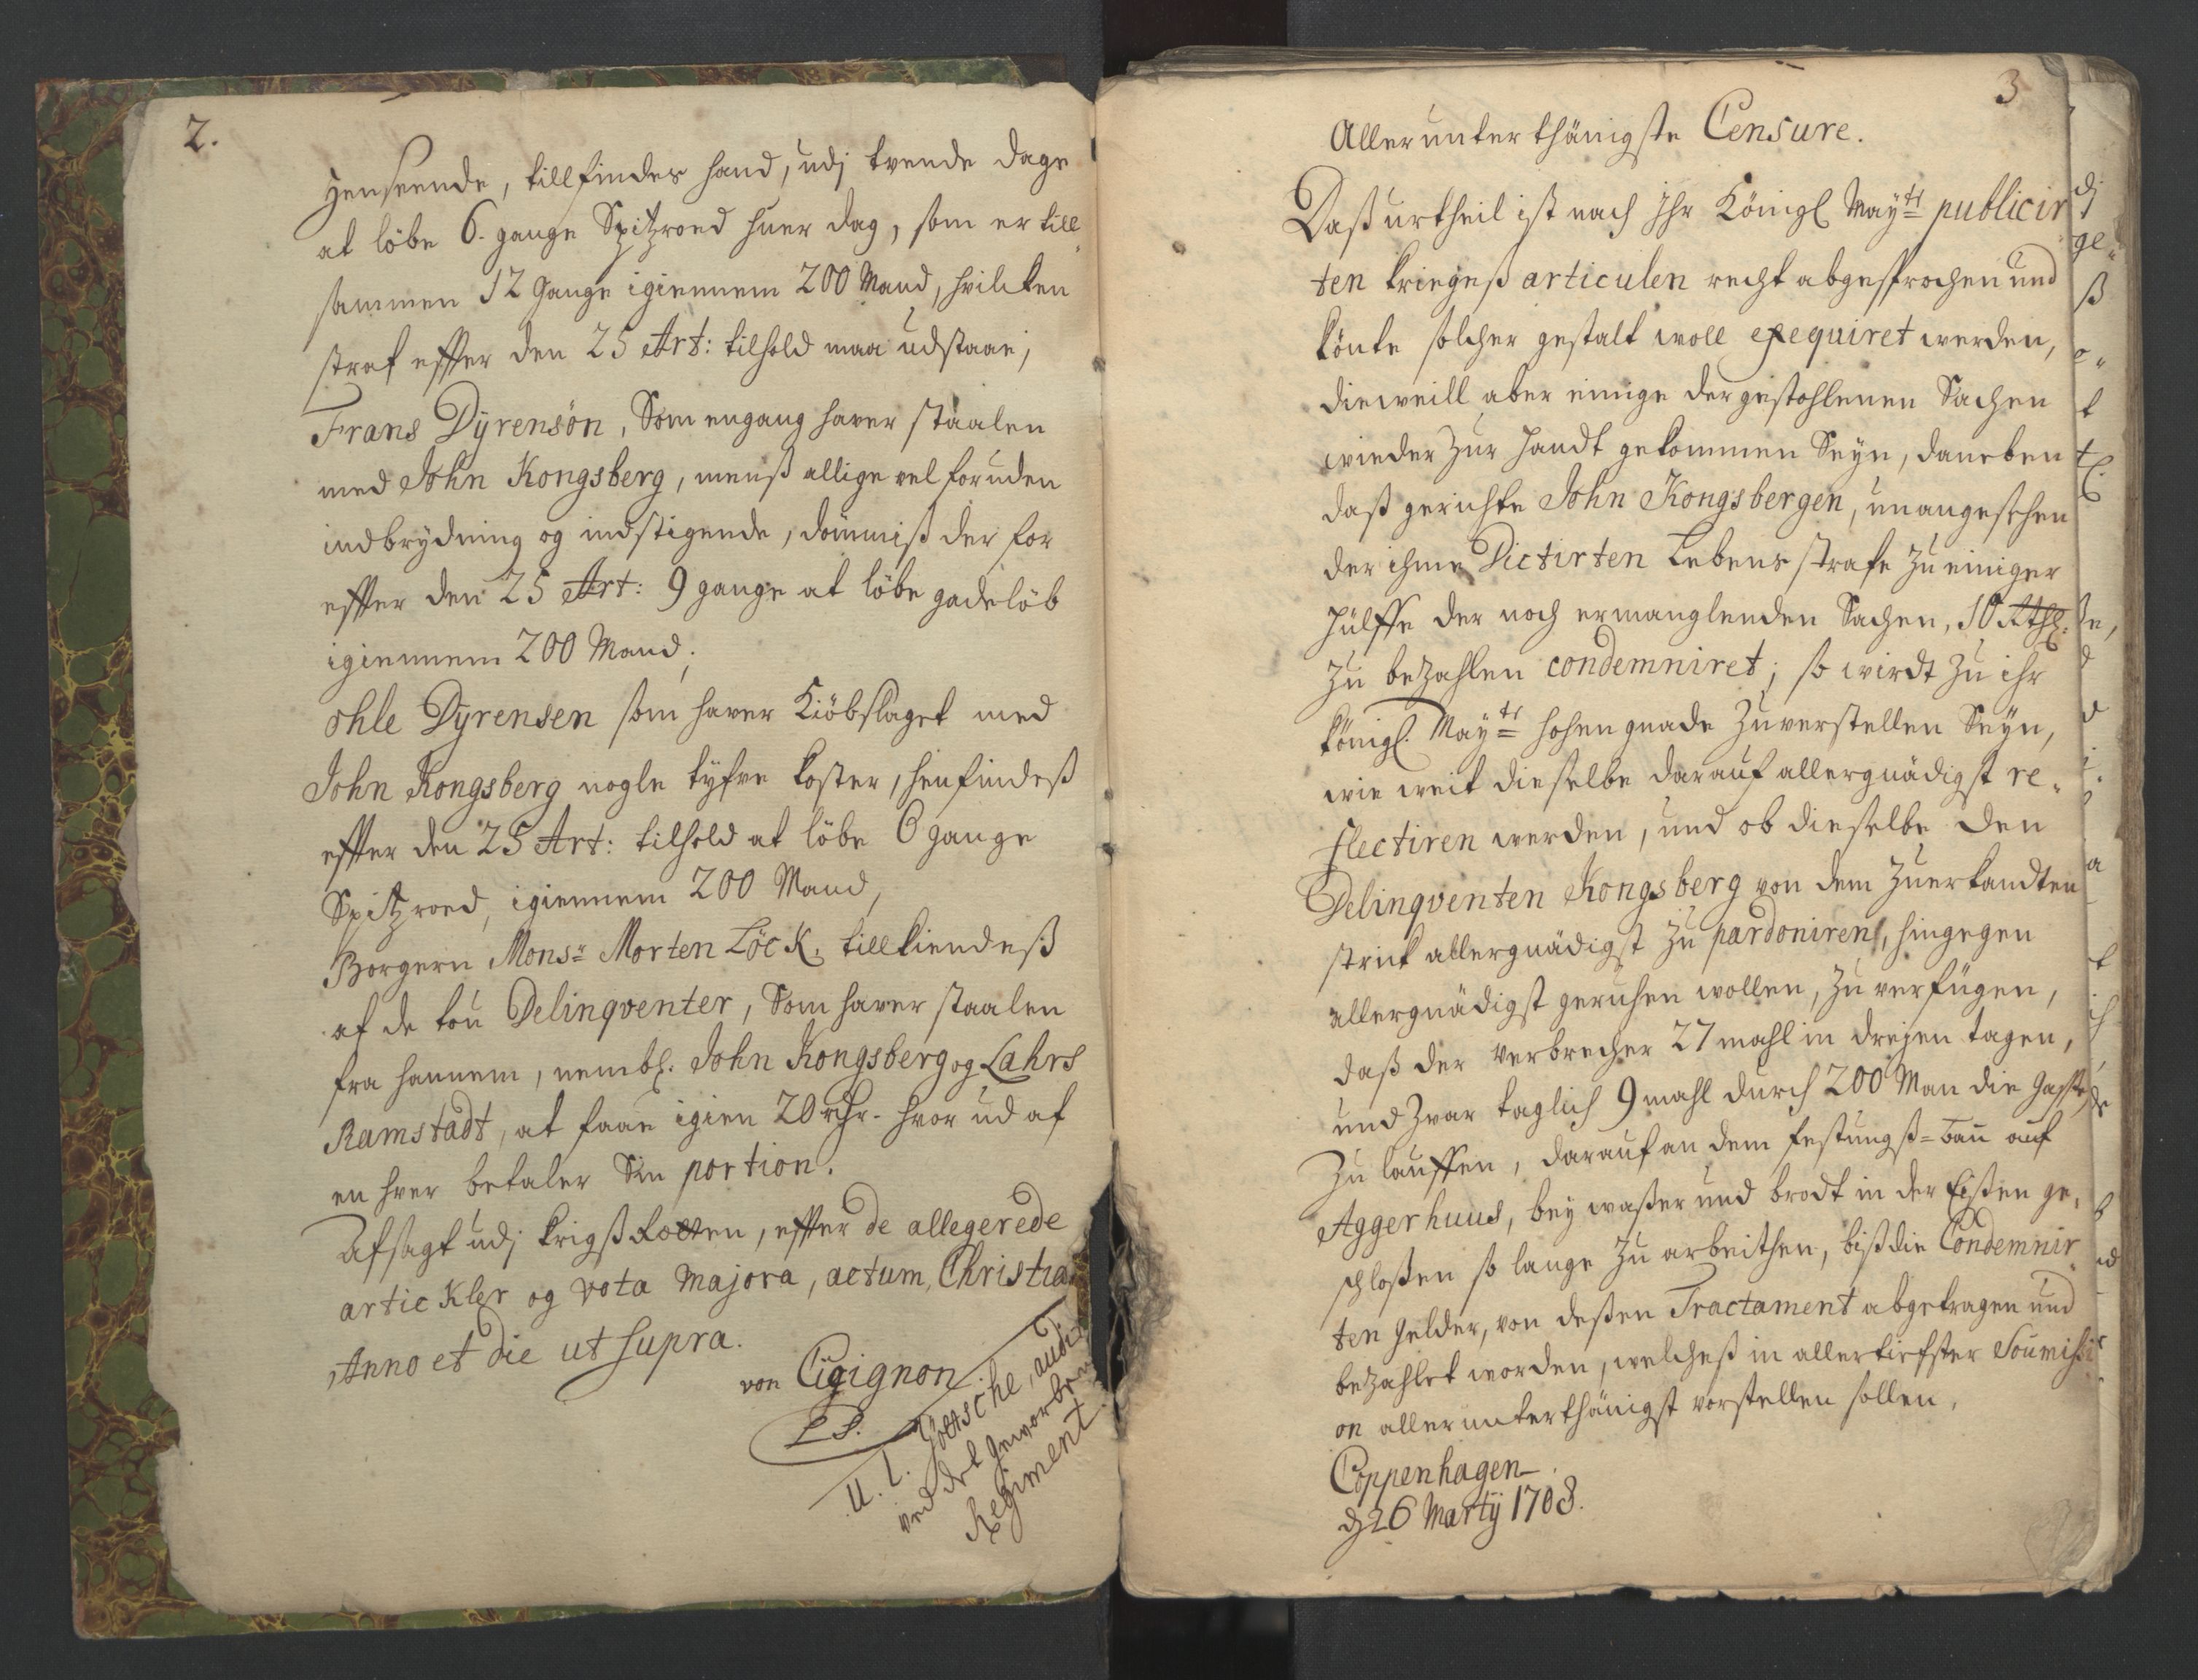 2.
henseende, tillfindes hand, udj tvende dage
at löbe 6. gange Spitzroed huer dag, som er till„
sammen 12 Gange igiennem 200 Mand, hvilcken
straf effter den 25 Art: tilhold maa udstaae,
Frans Dÿrensön, Som engang haver staalen
med John Kongsberg, menß allige vel foruden
indbrydning og indstigende, dömmiß der for
effter den 25 Art: 9 gange at löbe gadelöb
igiennem 200 Mand,
Ohle Dÿrensen som haver Kiöbslaget med
John Kongsberg nogle tyfve koster, henfindeß
effter den 25 Art: tilhold at löbe 6 gange
Spitzroed, igiennem 200 Mand,
Borgern Monsr Morten Löck, tillkiendeß
af de tou Delinqventer, Som haver staalen
fra hannem, nembl. John Kongsberg og Lahrs
Ramstadt, at faae igien 20 rdr. hvor ud af
en hver betaler Sin portion.
Afsagt udj krigß Rætten, effter de allegerede
artickler og vota Majora, actum, Christia
Anno et die ut supra.
von Cicignon
LS.
U. C. Göttsche, audi
ved det geworben
Regiment
3
Allerunterthänigste Censure.
Daß urtheil ist nach Ihr Königl Mayts publicir
ten kriegeß articulen recht abgesprochen und
könte solcher gestalt woll exequiret werden,
dieweill aber einige der gestohlenen Sachen
wieder zur handt gekommen Seyn, daneben
daß gerichte John Kongsbergen, unangesehen
der ihme Dictirten Lebens strafe zu einiger
hülffe der noch ermanglenden Sachen, 10 Rthl.
zu bezahlen condemniret; so wirdt zu ihr
königl. Mayts hohen gnade zuverstellen Seyn,
wie weit dieselbe darauf allergnädigst re„
flectiren werden, und ob dieselbe den
Delinqventen Kongsberg von dem zuerkandten
strick allergnädigst zu pardoniren, hingegen
allergnädigst geruhen wollen, zu verfügen,
daß der verbrecher 27 mahl in dreyen tagen,
und zwar taglich 9 mahl durch 200 Man die gasse
zu lauffen, darauf an dem festungß-bau auf
Aggerhuus, bey waßer und brodt in der Eißen ge„
schloßen so lange zu arbeithen, biß die Condemnir„
ten gelder, von deßen Tractament abgetragen und
bezahlet worden, welcheß in allertiefster Soumissi
on allerunterthänigst vorstellen sollen,
Coppenhagen
d 26 Martÿ 1708.